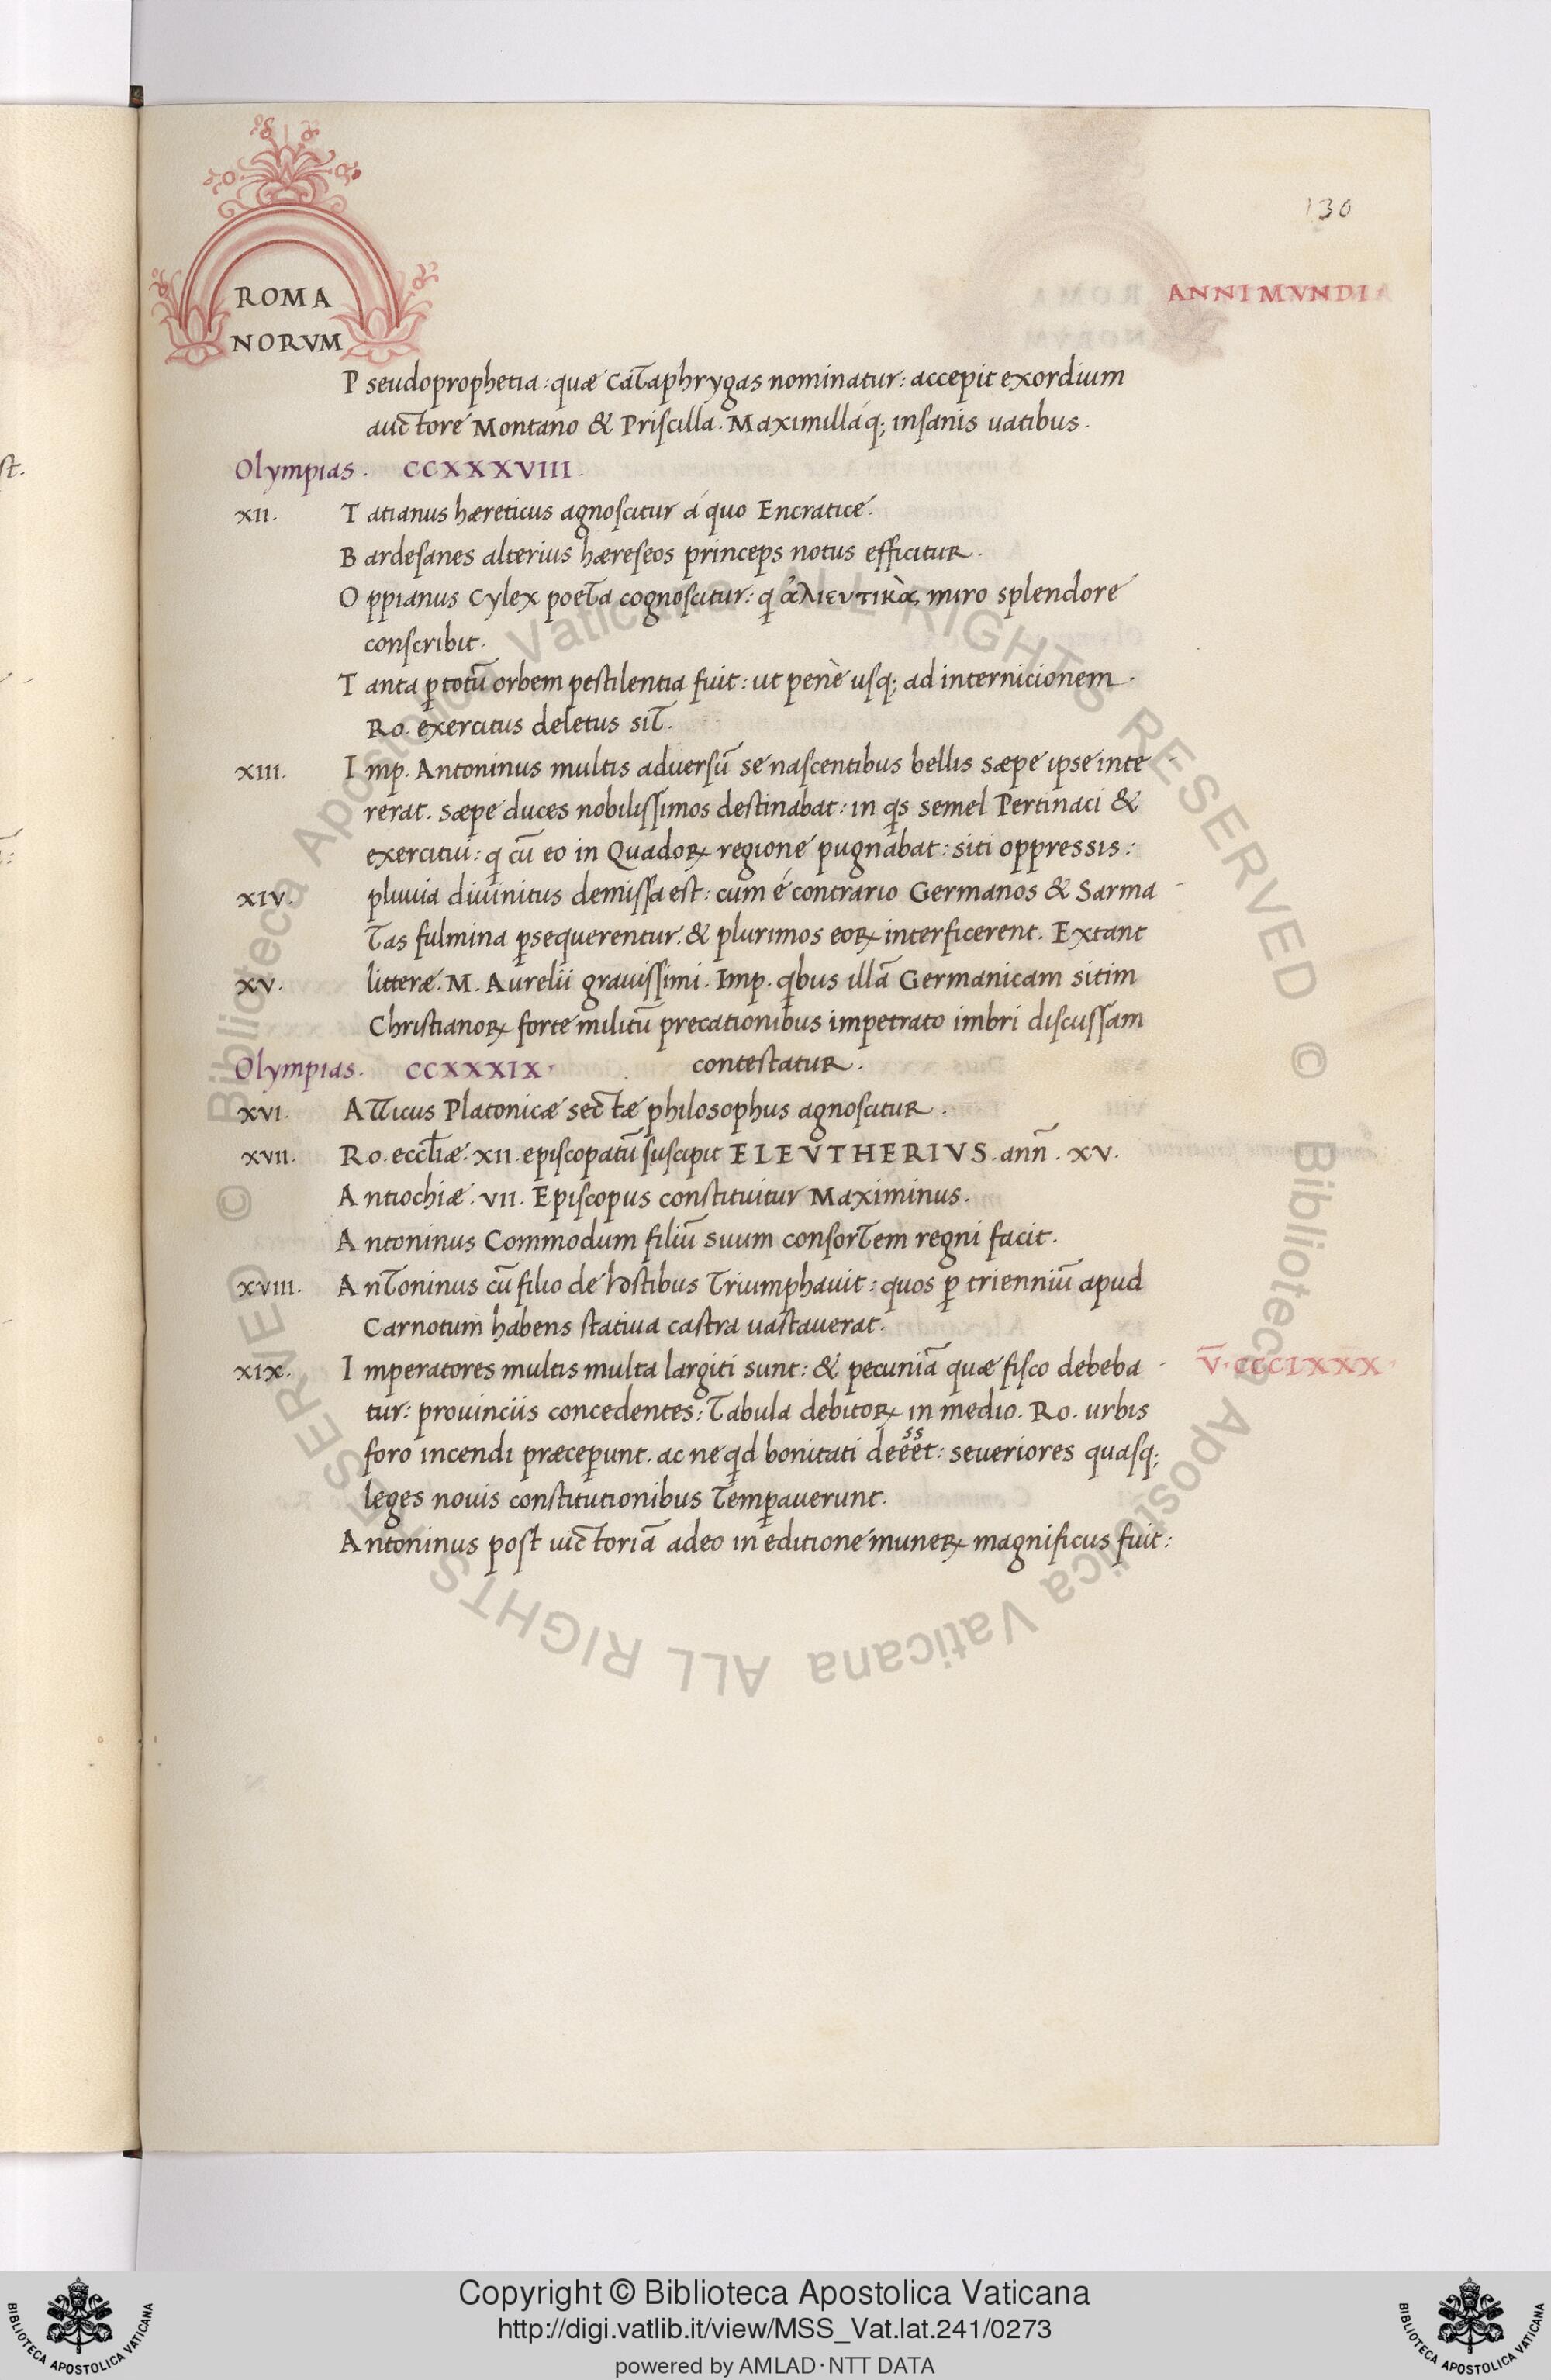 130
ROMA
NORVM
ANNI MVNDI
Pseudoprophetia: quæ Cataphrygas nominatur: accepit exordium
auctore Montano & Priscilla. Maximillaq; insanis uatibus.
Olympias. CCXXXVIII.
XII. Tatianus hæreticus agnoscitur á quo Encratice.
Bardesanes alterius hæreseos princeps notus efficitur.
Oppianus Cylex poeta cognoscitur: q ἁλιευτικὰ, miro splendore
conscribit.
Tanta p totū orbem pestilentia fuit: ut penè usq; ad internicionem.
Ro. exercitus deletus sit.
XIII. Imp. Antoninus multis aduersū se nascentibus bellis sæpe ipse inte-
rerat. sæpe duces nobilissimos destinabat: in qs semel Pertinaci &
exercitui: q cū eo in Quadoꝝ regione pugnabat: siti oppressis:
XIV. pluuia diuinitus demissa est: cum é contrario Germanos & Sarma-
tas fulmina psequerentur. & plurimos eoꝝ interficerent. Extant
XV. litteræ. M. Aurelii grauissimi. Imp. qbus illā Germanicam sitim
Christianoꝝ forte militū precationibus impetrato imbri discussam
contestatur.
Olympias. CCXXXIX.
XVI. Atticus Platonicæ sectæ philosophus agnoscitur.
XVII. Ro. eccl̄iæ. XII. episcopatū suscipit ELEVTHERIVS. ann̄. XV.
Antiochiæ. VII. Episcopus constituitur Maximinus.
Antoninus Commodum filiū suum consortem regni facit.
XVIII. Antoninus cū filio de hostibus triumphauit: quos p trienniū apud
Carnotum habens statiua castra uastauerat.
XIX. Imperatores multis multa largiti sunt: & pecuniā quæ fisco debeba- V̄.CCCLXXX.
tur: prouinciis concedentes: tabula debitoꝝ in medio. Ro. urbis
foro incendi præcepunt. ac ne qd bonitati deeēt: seueriores quasq;
ss
leges nouis constitutionibus tempauerunt.
Antoninus post uictoriā adeo in editione muneꝝ magnificus fuit:
© Biblioteca Apostolica Vaticana ALL RIGHTS RESERVED © Biblioteca Apostolica Vaticana ALL RIGHTS RESERVED
Copyright © Biblioteca Apostolica Vaticana
http://digi.vatlib.it/view/MSS_Vat.lat.241/0273
powered by AMLAD·NTT DATA
BIBLIOTECA APOSTOLICA VATICANA
BIBLIOTECA APOSTOLICA VATICANA